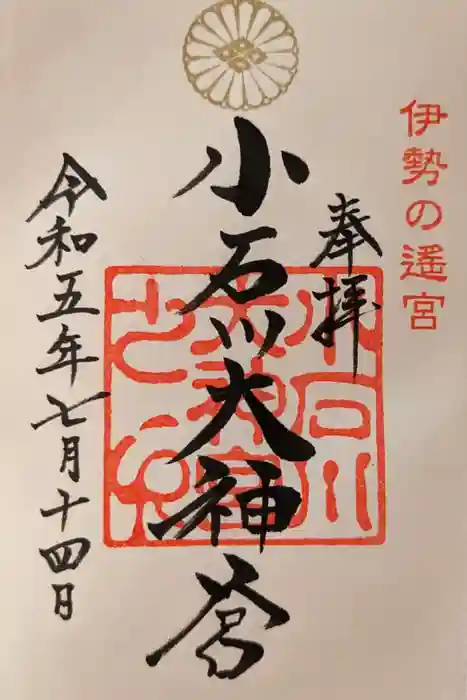 伊勢の遥宮
奉拝
小石川大神宮
令和五年七月十四日
小石川
大神宮
之印